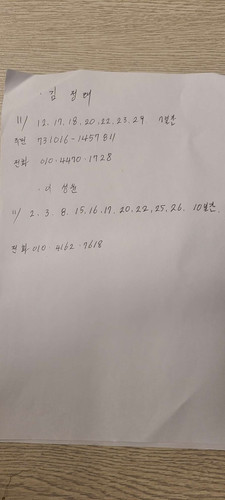 · 김정태
11/ 12.17.18.20.22.23.29 7일간
주민 731016-1457811
전화 010.4470.1728
· 이
11/ 2.3.8.15.16.17.20.22.25.26. 10일간
전화 010.4162.7618